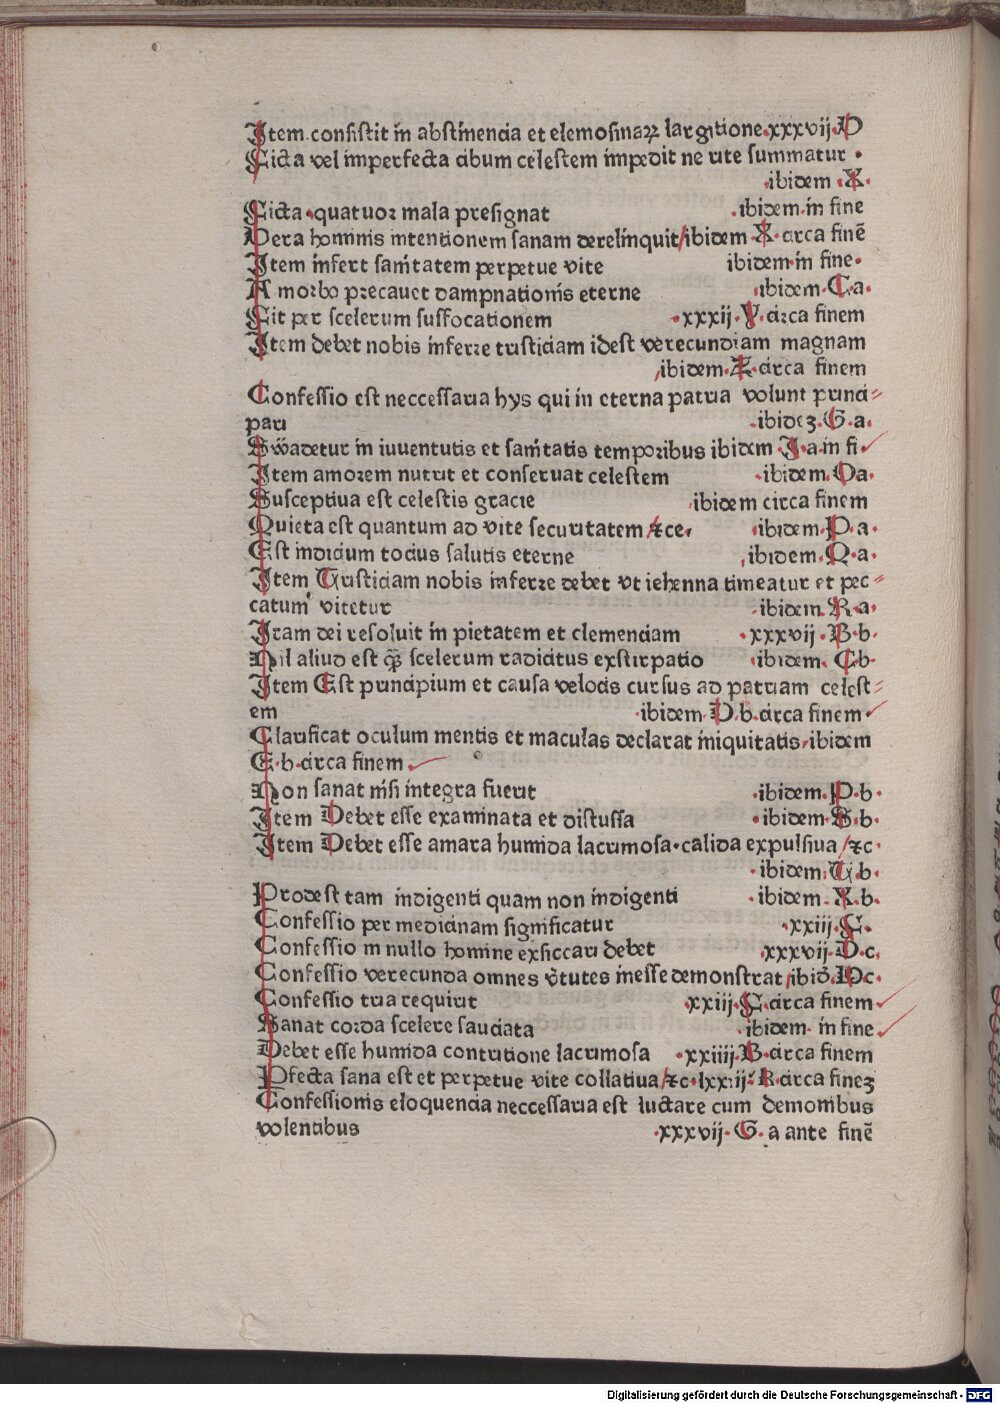 Item consistit in abstinencia et elemosinaꝝ largitione·xxxvij·D
Sicta vel imperfecta cibum celestem impedit ne rite summatur·
·ibidem·X·
Sicta·quatuor mala presignat ·ibidem·in fine
Vera hominis intentionem sanam derelinquit/ibidem·X·circa finē
Item infert sanitatem perpetue vite ibidem·in fine·
A morbo precauet dampnationis eterne ·ibidem·C·a·
Sit per scelerum suffocationem ·xxxij·V·circa finem
Item debet nobis inferre tristiciam idest verecundiam magnam
/ibidem·X·circa finem
Confessio est neccessaria hys qui in eterna patria volunt princi⸗
pari ·ibideꝫ·G·a·
Swadetur in iuuentutis et sanitatis temporibus ibidem·I·a·in fi·
Item amorem nutrit et conseruat celestem ·ibidem·Oa·
Susceptiua est celestis gracie ·ibidem circa finem
Quieta est quantum ad vite securitatem/ꝛce· ·ibidem·P·a·
Est indicium tocius salutis eterne ·ibidem·Q·a·
Item Tristiciam nobis inferre debet vt iehenna timeatur et pec⸗
catum vitetur ·ibidem·R·a·
Iram dei resoluit in pietatem et clemenciam ·xxxvij·B·b·
Nil aliud est qꝫ̄ scelerum radicitus exstirpatio ·ibidem·Cb·
Item Est principium et causa velocis cursus ad patriam celest⸗
em ·ibidem·D·b·circa finem·
Clarificat oculum mentis et maculas declarat iniquitatis·ibidem
E·b·circa finem·
Non sanat nisi integra fuerit ·ibidem·P·b·
Item Debet esse examinata et discussa ·ibidem·S·b·
Item Debet esse amara humida lacrimosa·calida expulsiua/ꝛc·
·ibidem·T·b·
Prodest tam indigenti quam non indigenti ·ibidem·X·b·
Confessio per medicinam significatur ·xxiij·S·
Confessio in nullo homine exsiccari debet ·xxxvij·D·c·
Confessio verecunda omnes v̄tutes inesse demonstrat/ibid̄·Dc·
Confessio tria requirit ·xxiij·S·circa finem
Sanat corda scelere sauciata ·ibidem·in fine
Debet esse humida contritione lacrimosa ·xxiiij·B·circa finem
Pfecta sana est et perpetue vite collatiua/ꝛc·lxxiij·R·circa fineꝫ
Confessionis eloquencia neccessaria est luctare cum demonibus
volentibus ·xxxvij·G·a ante finē
Digitalisierung gefördert durch die Deutsche Forschungsgemeinschaft · DFG